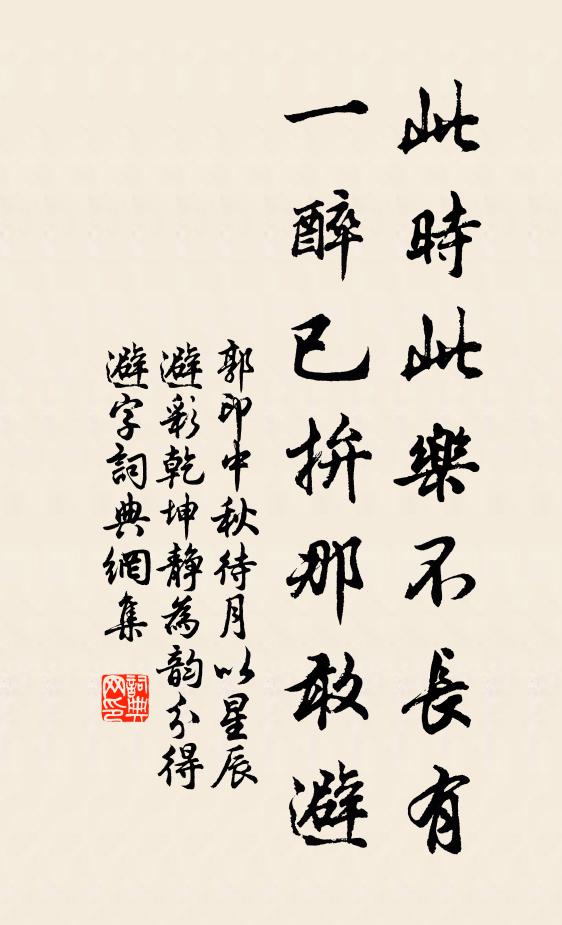 此時此樂不長有
一醉已拚那敢避
郭印中秋待月以星辰
避彩乾坤靜為韵分得
避字詞典網集
詞典網印